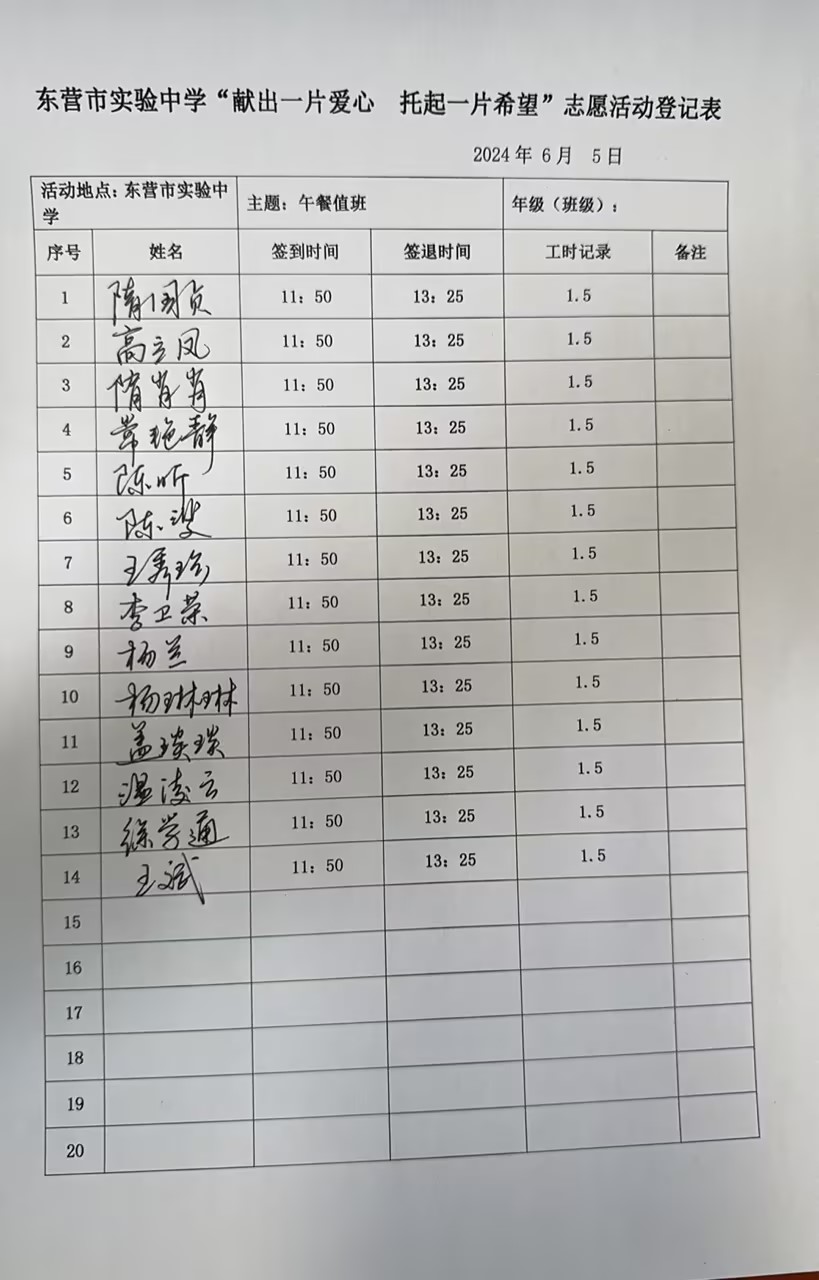 东营市实验中学“献出一片爱心 托起一片希望”志愿活动登记表
2024 年 6 月 5 日
活动地点：东营市实验中学 主题：午餐值班 年级（班级）：
序号 姓名 签到时间 签退时间 工时记录 备注
1 隋国贞 11：50 13：25 1.5
2 高立凤 11：50 13：25 1.5
3 隋肖肖 11：50 13：25 1.5
4 常艳静 11：50 13：25 1.5
5 陈昕 11：50 13：25 1.5
6 11：50 13：25 1.5
7 11：50 13：25 1.5
8 李卫荣 11：50 13：25 1.5
9 杨兰 11：50 13：25 1.5
10 杨琳琳 11：50 13：25 1.5
11 盖琰琰 11：50 13：25 1.5
12 温凌云 11：50 13：25 1.5
13 徐学通 11：50 13：25 1.5
14 王斌 11：50 13：25 1.5
15
16
17
18
19
20